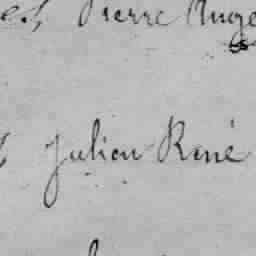 Pierre Auge
Julien René